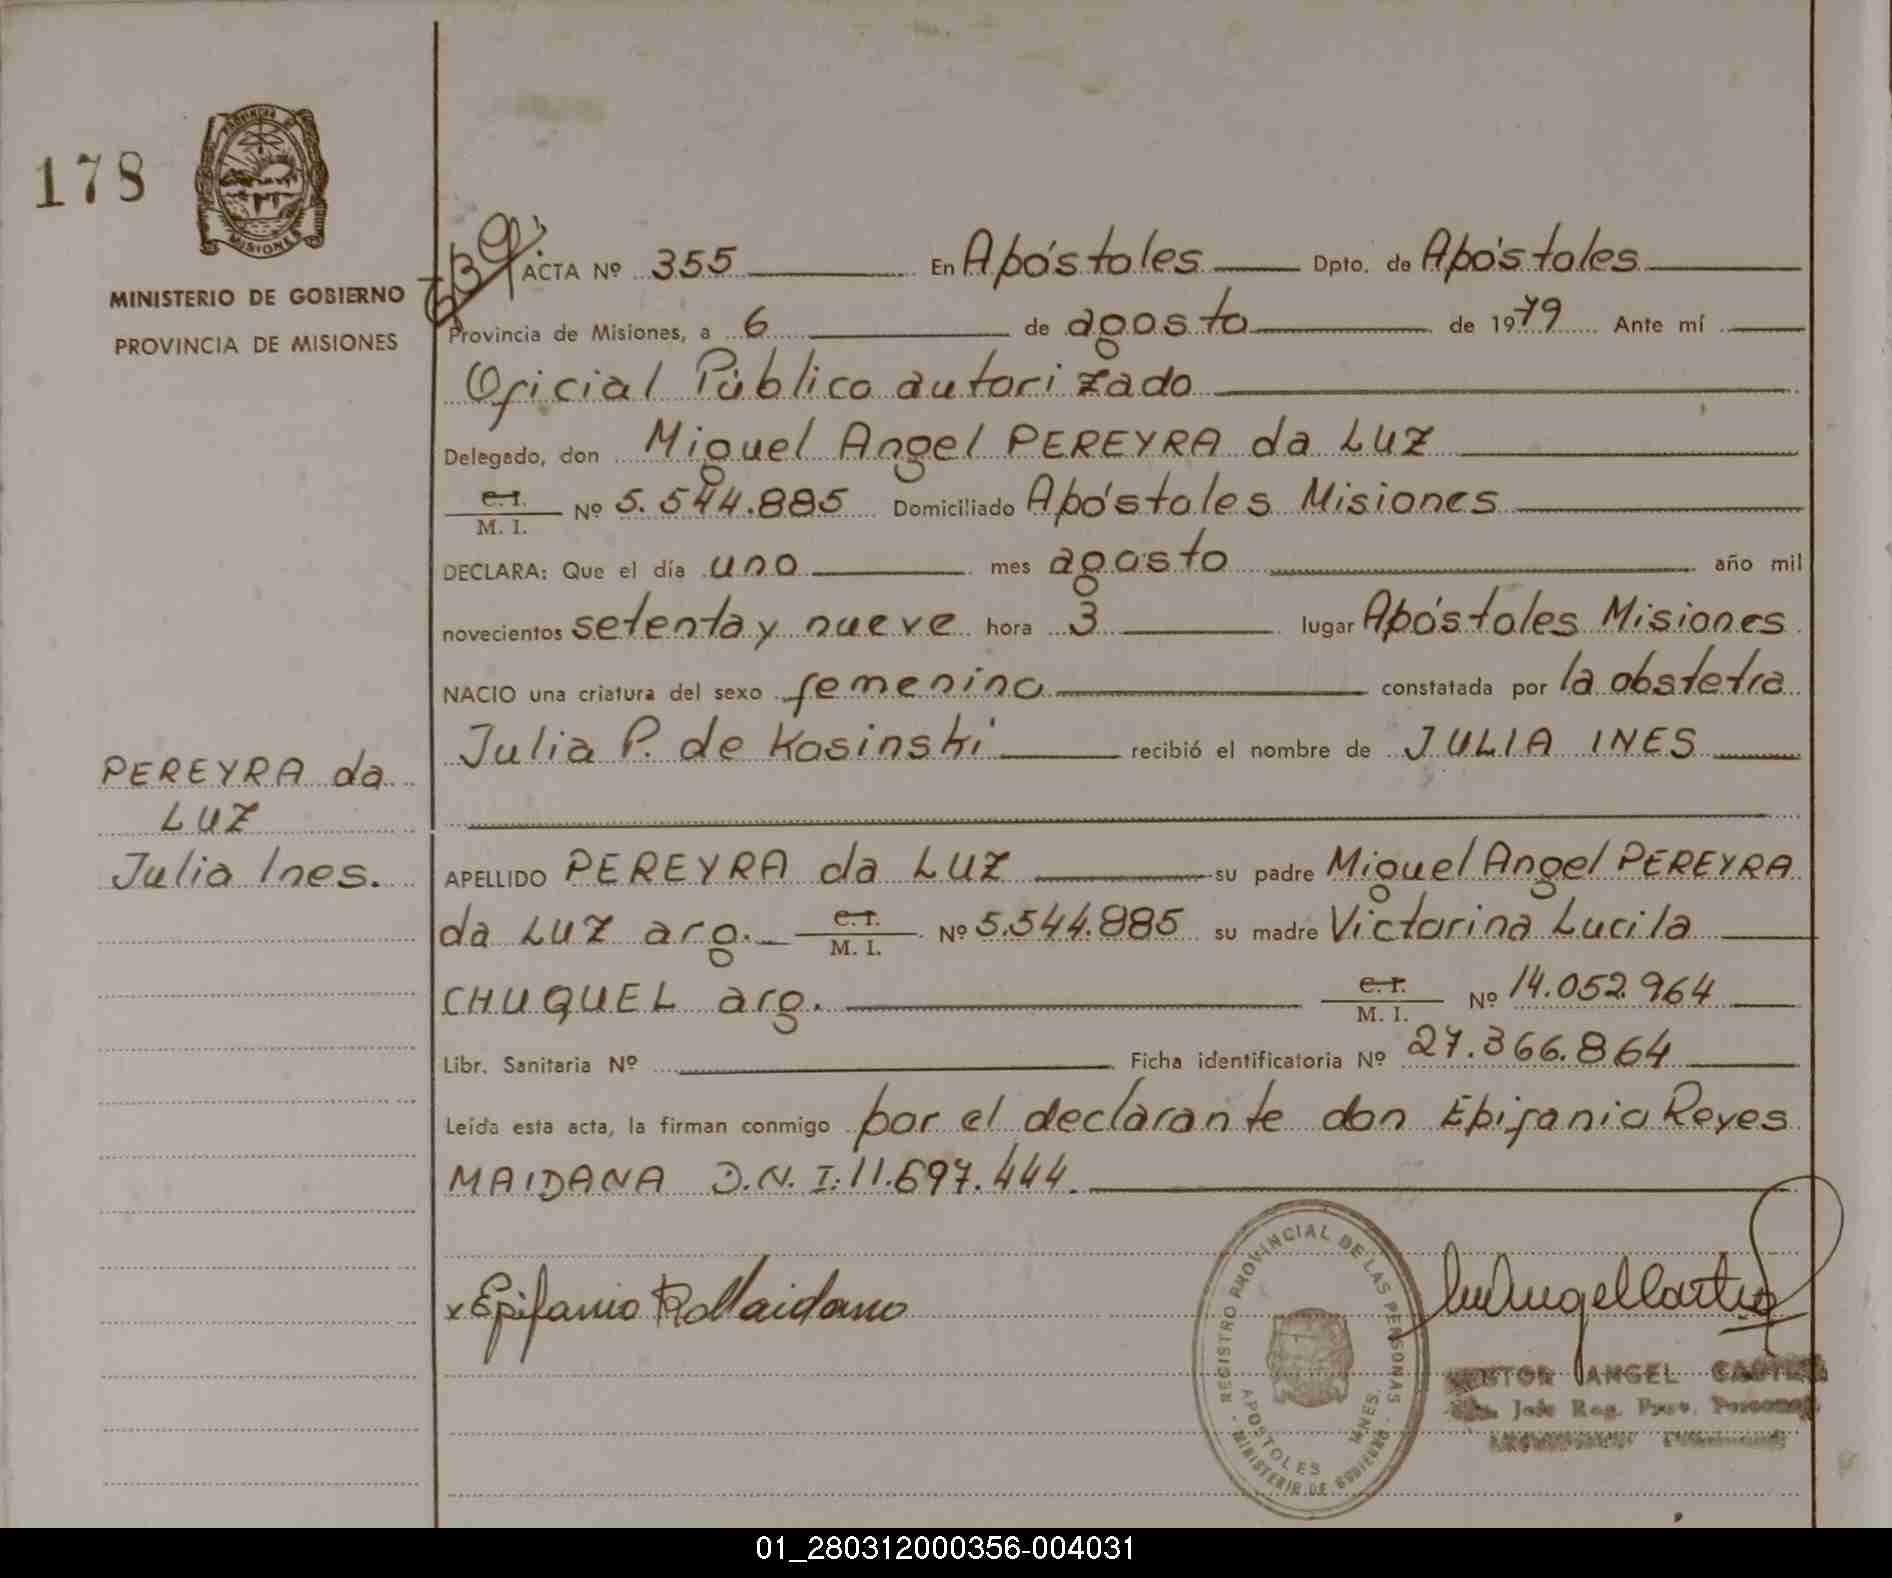 178
PROVINCIA DE
MISIONES
MINISTERIO DE GOBIERNO
PROVINCIA DE MISIONES
PEREYRA da
LUZ
Julia Ines.
ACTA Nº 355 En Apóstoles Dpto. de Apóstoles
Provincia de Misiones, a 6 de agosto de 1979 Ante mí
Oficial Público autorizado
Delegado, don Miguel Angel PEREYRA da LUZ
c.i.
M. I. Nº 5.544.885 Domiciliado Apóstoles Misiones
DECLARA: Que el día uno mes agosto año mil
novecientos setenta y nueve hora 3 lugar Apóstoles Misiones
NACIO una criatura del sexo femenino constatada por la obstetra
Julia P. de Kosinski recibió el nombre de JULIA INES
APELLIDO PEREYRA da LUZ su padre Miguel Angel PEREYRA
da LUZ arg. c.i. M. I. Nº 5.544.885 su madre Victorina Lucila
CHUQUEL arg. c.i. M. I. Nº 14.052.964
Libr. Sanitaria Nº Ficha identificatoria Nº 27.366.864
Leída esta acta, la firman conmigo por el declarante don Epifanio Reyes
MAIDANA D.N.I: 11.697.444.
x Epifanio R Maidano
REGISTRO PROVINCIAL DE LAS PERSONAS
APOSTOLES MNES.
- MINISTERIO DE GOBIERNO -
ANGEL
Jefe Reg. Prov. Personas
01_280312000356-004031